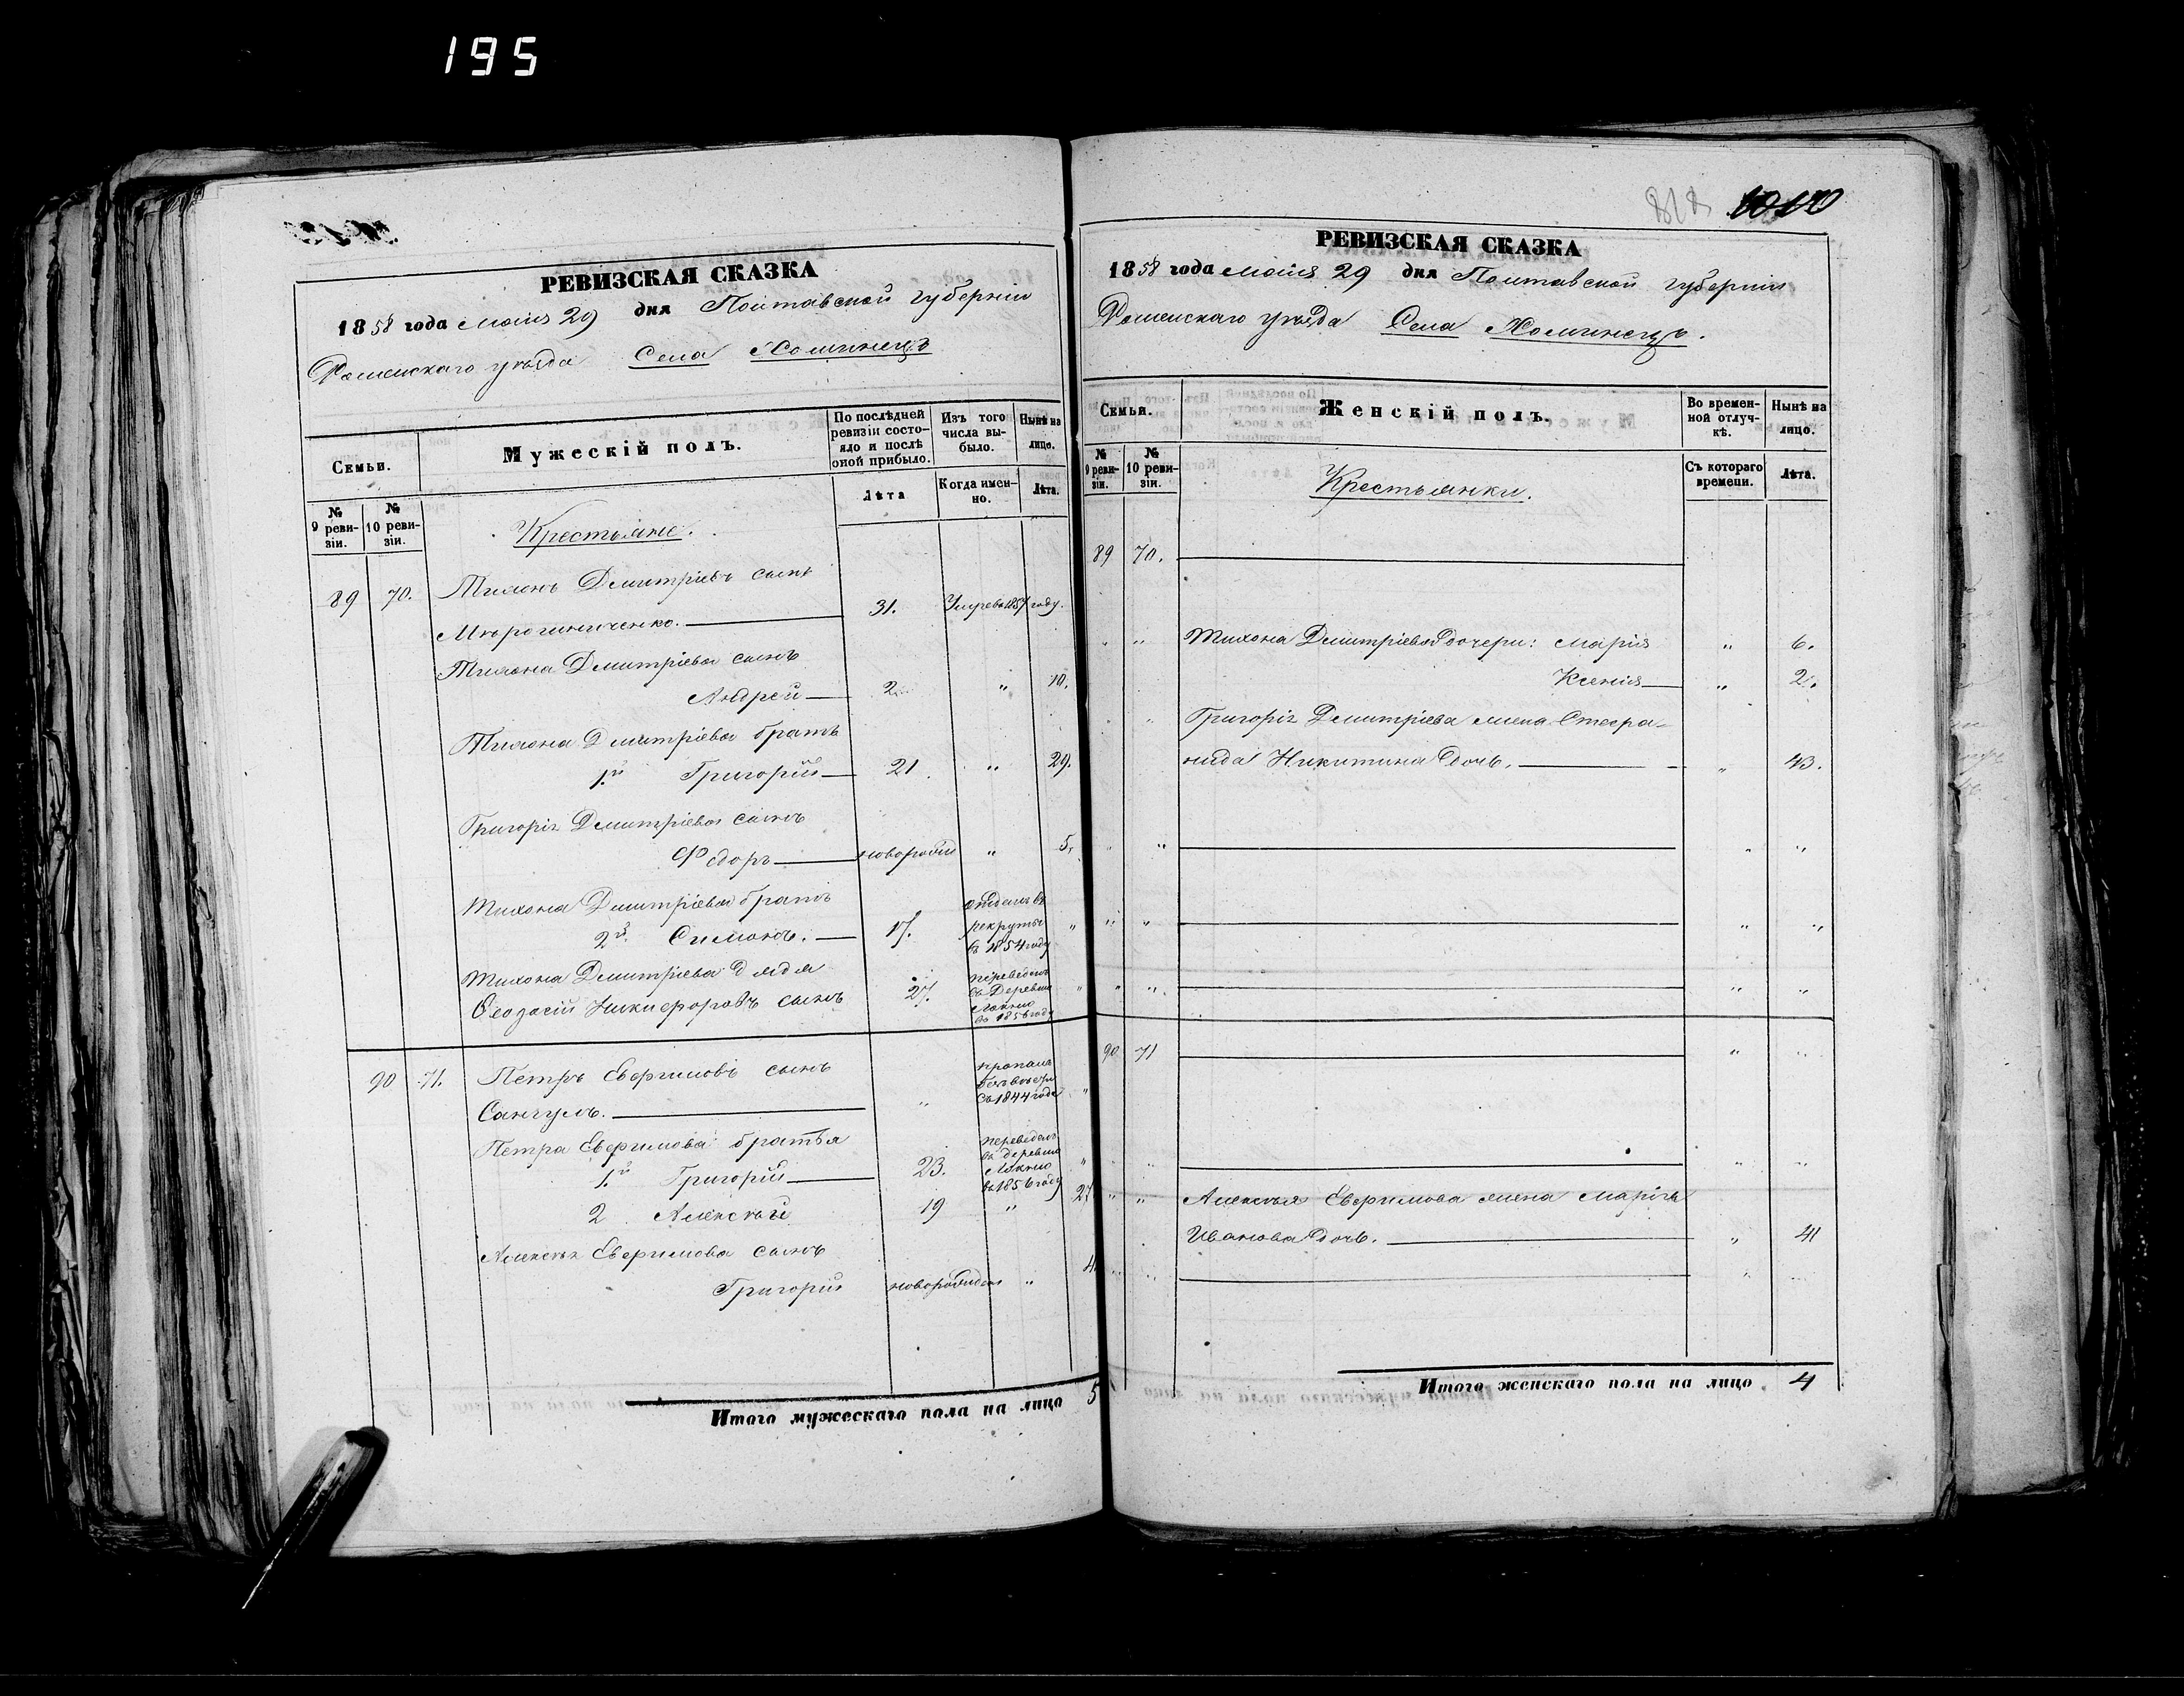 195
РЕВИЗСКАЯ СКАЗКА
1858 года Маія 29 дня Полтавской губерніи
Роменскаго уѣзда Села Хоминецъ
Семьи.
Мужескій полъ.
По послѣдней ревизіи состояло и послѣ оной прибыло.
Изъ того числа выбыло.
Нынѣ на лицо.
№ 9 ревизіи.
№ 10 ревизіи.
Лѣта
Когда именно.
Лѣта.
Крестьяне.
89 70. Тихонъ Дмитріевъ сынъ
31. Умре въ 1857 году.
Тихона Дмитріева сынъ
Андрей 2 " 10.
Тихона Дмитріева братъ
1й Григорій 21. " 29.
Григорія Дмитріева сынъ
Федоръ новорожден " 5.
Тихона Дмитріева братъ
2й Симонъ. 17. отданъ въ рекруты въ 1854 году "
Тихона Дмитріева дядя
Ѳеодосій Никифоровъ сынъ 27. переведенъ въ деревню Локню въ 1856 году "
90 71. Петръ Евфимовъ сынъ
Санчулъ. " пропалъ безъ вести въ 1844 года "
Петра Евфимова братья
1й Григорій 23. переведенъ въ деревню Локню въ 1856 году "
2 Алексѣй 19 " 27
Алексѣя Евфимова сынъ
Григорій новорожден " 4.
Итого мужескаго пола на лицо 5
РЕВИЗСКАЯ СКАЗКА
1858 года Маія 29 дня Полтавской губерніи
Роменскаго уѣзда Села Хоминецъ.
Семьи.
Женскій полъ.
Во временной отлучкѣ.
Нынѣ на лицо.
№ 9 ревизіи.
№ 10 ревизіи.
Съ котораго времени.
Лѣта.
Крестьянки.
89 70.
" Тихона Дмитріева дочери: Марія " 6.
Ксенія " 2.
" Григорія Дмитріева жена Степа-
нида Никитина дочь. " 43.
" " " "
" " " "
" " " "
90 71 " "
" " "
" " Алексѣя Евфимова жена Марія
Иванова дочь. " 41
" " " "
Итого женскаго пола на лицо 4